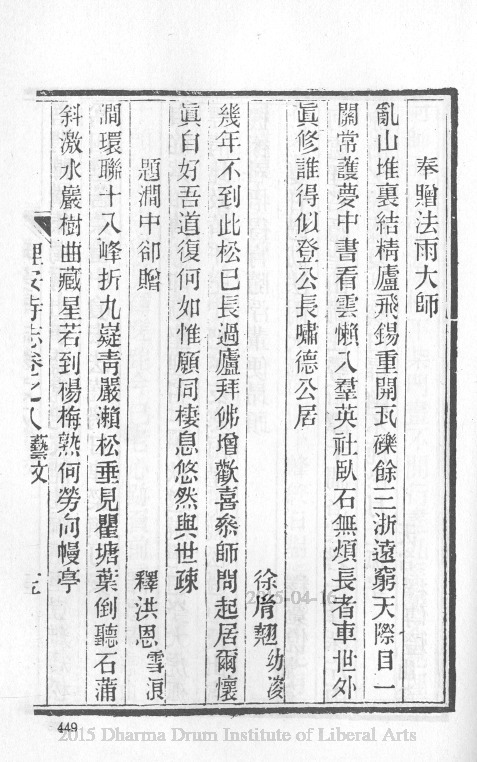 奉贈法雨大師
亂山堆裏結精廬飛錫重開瓦礫餘三浙遠窮天際目一
關常護夢中書看雲懶入羣英社臥石無煩長者車世外
眞修誰得似登公長嘯德公居
徐胤翹幼淩
幾年不到此松已長過廬拜佛增歡喜叅師問起居爾懷
眞自好吾道復何如惟願同棲息悠然與世疎
題澗中卻贈
釋洪恩雪浪
澗環聯十八峰折九嶷靑嚴瀨松垂見瞿塘葉倒聽石蒲
斜激水巖樹曲藏星若到楊梅熟何勞向幔亭
理安寺志卷之八藝文
十五
449
2015-04-16
2015 Dharma Drum Institute of Liberal Arts